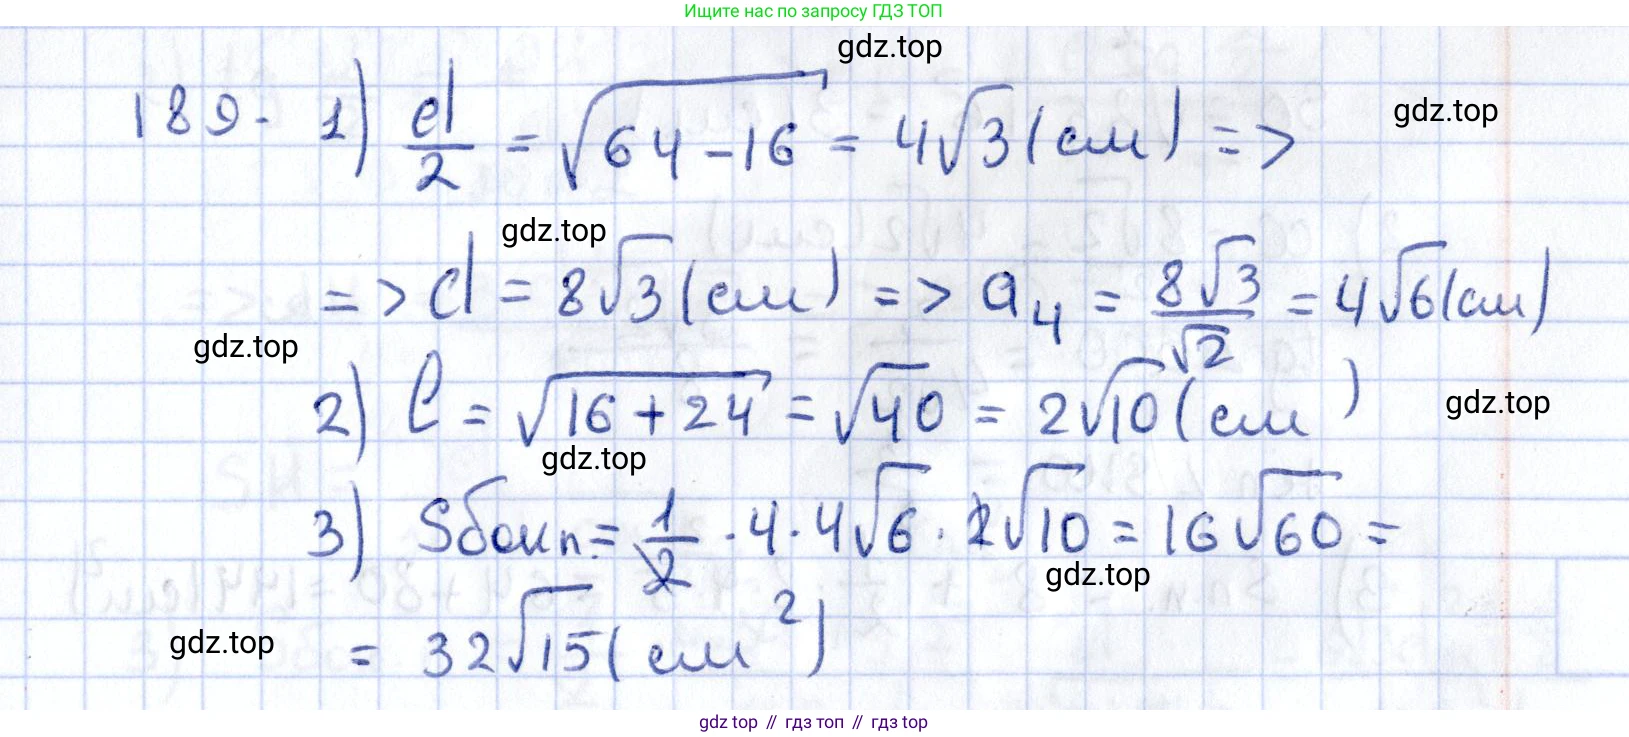 Ищите нас по запросу ГДЗ ТОП
gdz.top
189. 1) d/2 = √(64 - 16) = 4√3 (см) =>
gdz.top
gdz.top
=> d = 8√3 (см) => a₄ = 8√3/√2 = 4√6 (см)
gdz.top
2) l = √(16 + 24) = √40 = 2√10 (см)
gdz.top
gdz.top
3) Sбок п. = 1/2 · 4 · 4√6 · 2√10 = 16√60 =
gdz.top
= 32√15 (см²)
gdz.top
gdz top // гдз топ // гдз top